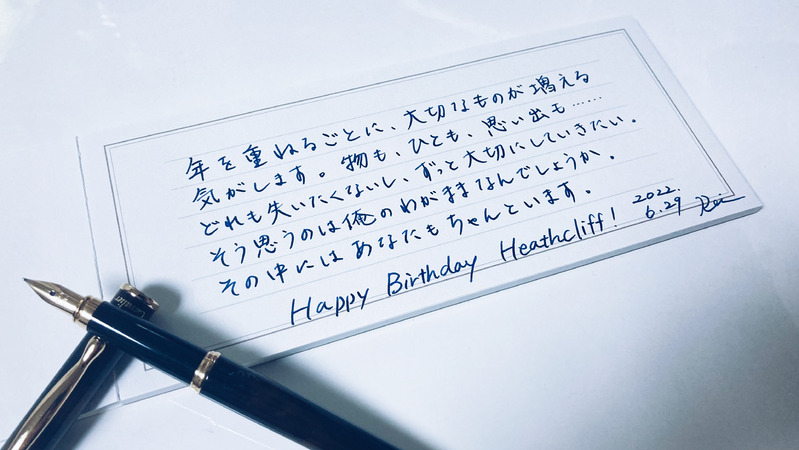 年を重ねるごとに、大切なものが増える
気がします。物も、ひとも、思い出も……
どれも失いたくないし、ずっと大切にしていきたい。
そう思うのは俺のわがままなんでしょうか。
その中にはあなたもちゃんといます。
Happy Birthday Heathcliff!
2022.
6.29
Rei